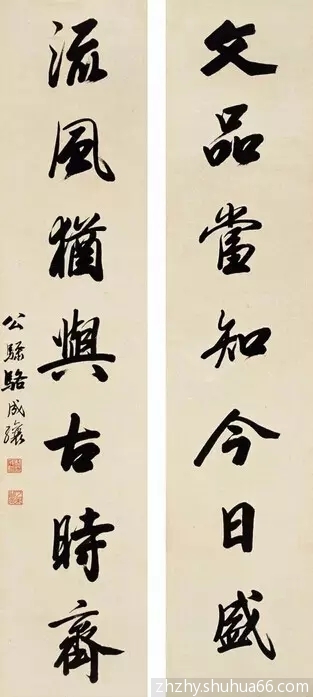 文品當知今日盛
流風猶與古時齊
公驌駱成驤
zhzhyshuhua66.com